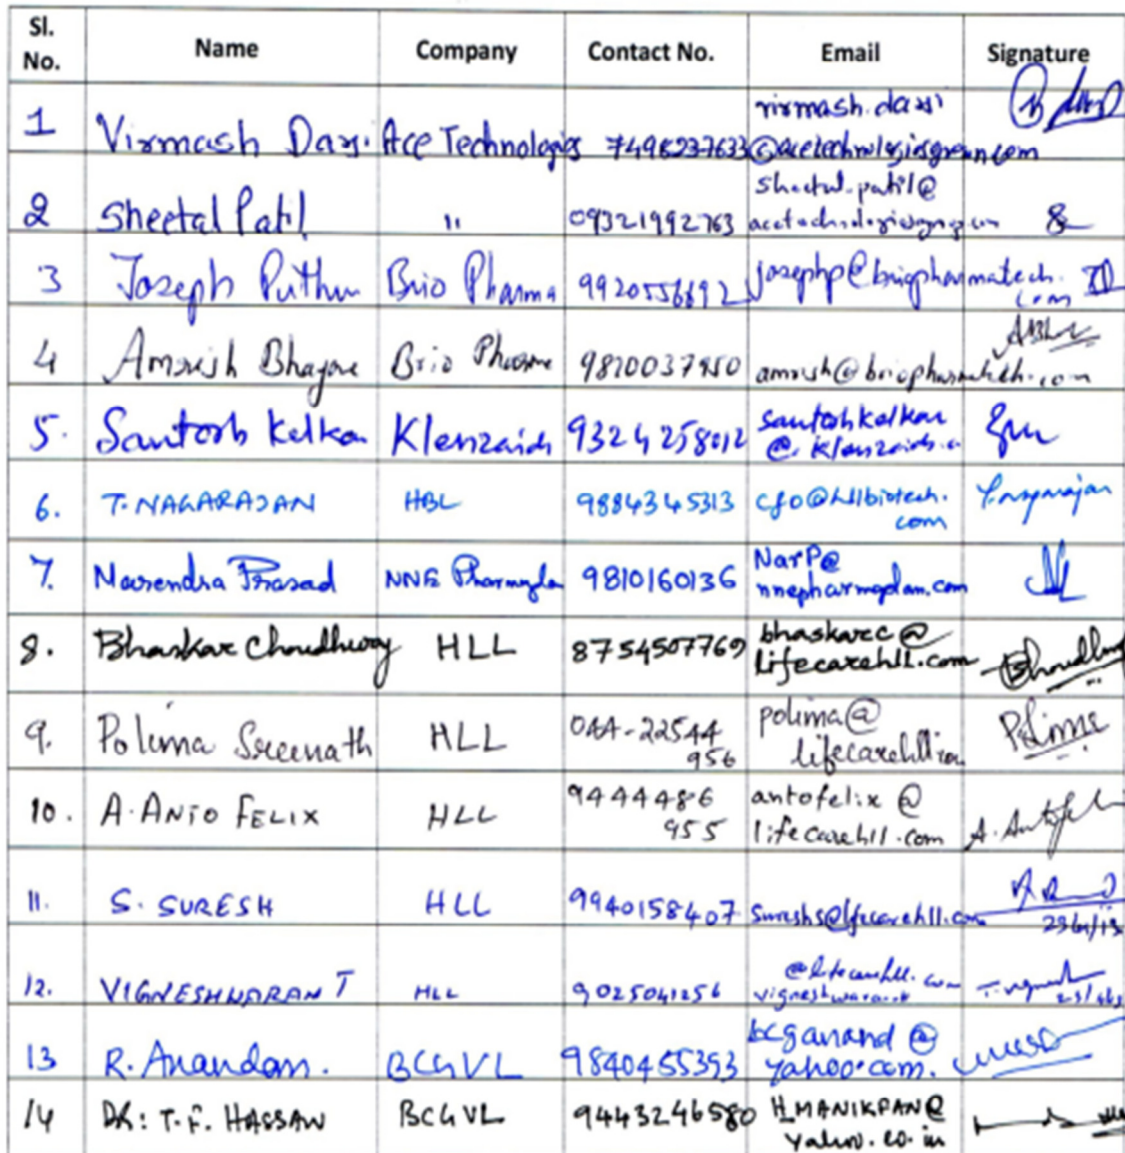 Sl. No. Name Company Contact No. Email Signature
1 Virmash Dasi. Ace Technologies 7498237633 virmash.dasi
@acetechnologiesgroup.com
2 Sheetal Patil " 09321992763 sheetal.patil@
3 Joseph Puthu Brio Pharma josephp@briopharmatech.
com
4 Amrish Bhagne Brio Pharma amrish@briopharmatech.com
5. Santosh Kelkar Klenzaids 9324258012 santoshkelkar
@.klenzaids.c
6. T. NAGARAJAN HBL 9884345313 cfo@hllbiotech.
com
7. Narendra Prasad NNE Pharmaplan 9810160136 NarP@
nnepharmaplan.com
8. Bhaskar Choudhury HLL 8754507769 bhaskarc@
lifecarehll.com
9. Polima Sreenath HLL 044-22544 polima@
956 lifecarehll.com
10. A. ANTO FELIX HLL 9444486 antofelix@
955 lifecarehll.com A. Antofel
11. S. SURESH HLL 9940158407 sureshs@lifecarehll.com
12. VIGNESHWARAN T HLL 9025041256 @lifecarehll.com
vigneshwarant
13 R. Anandan. BCGVL 9840455353 bcganand@
yahoo.com.
14 DR: T. F. HASSAN BCGVL 9443246580 H_MANIKPAN@
yahoo.co.in